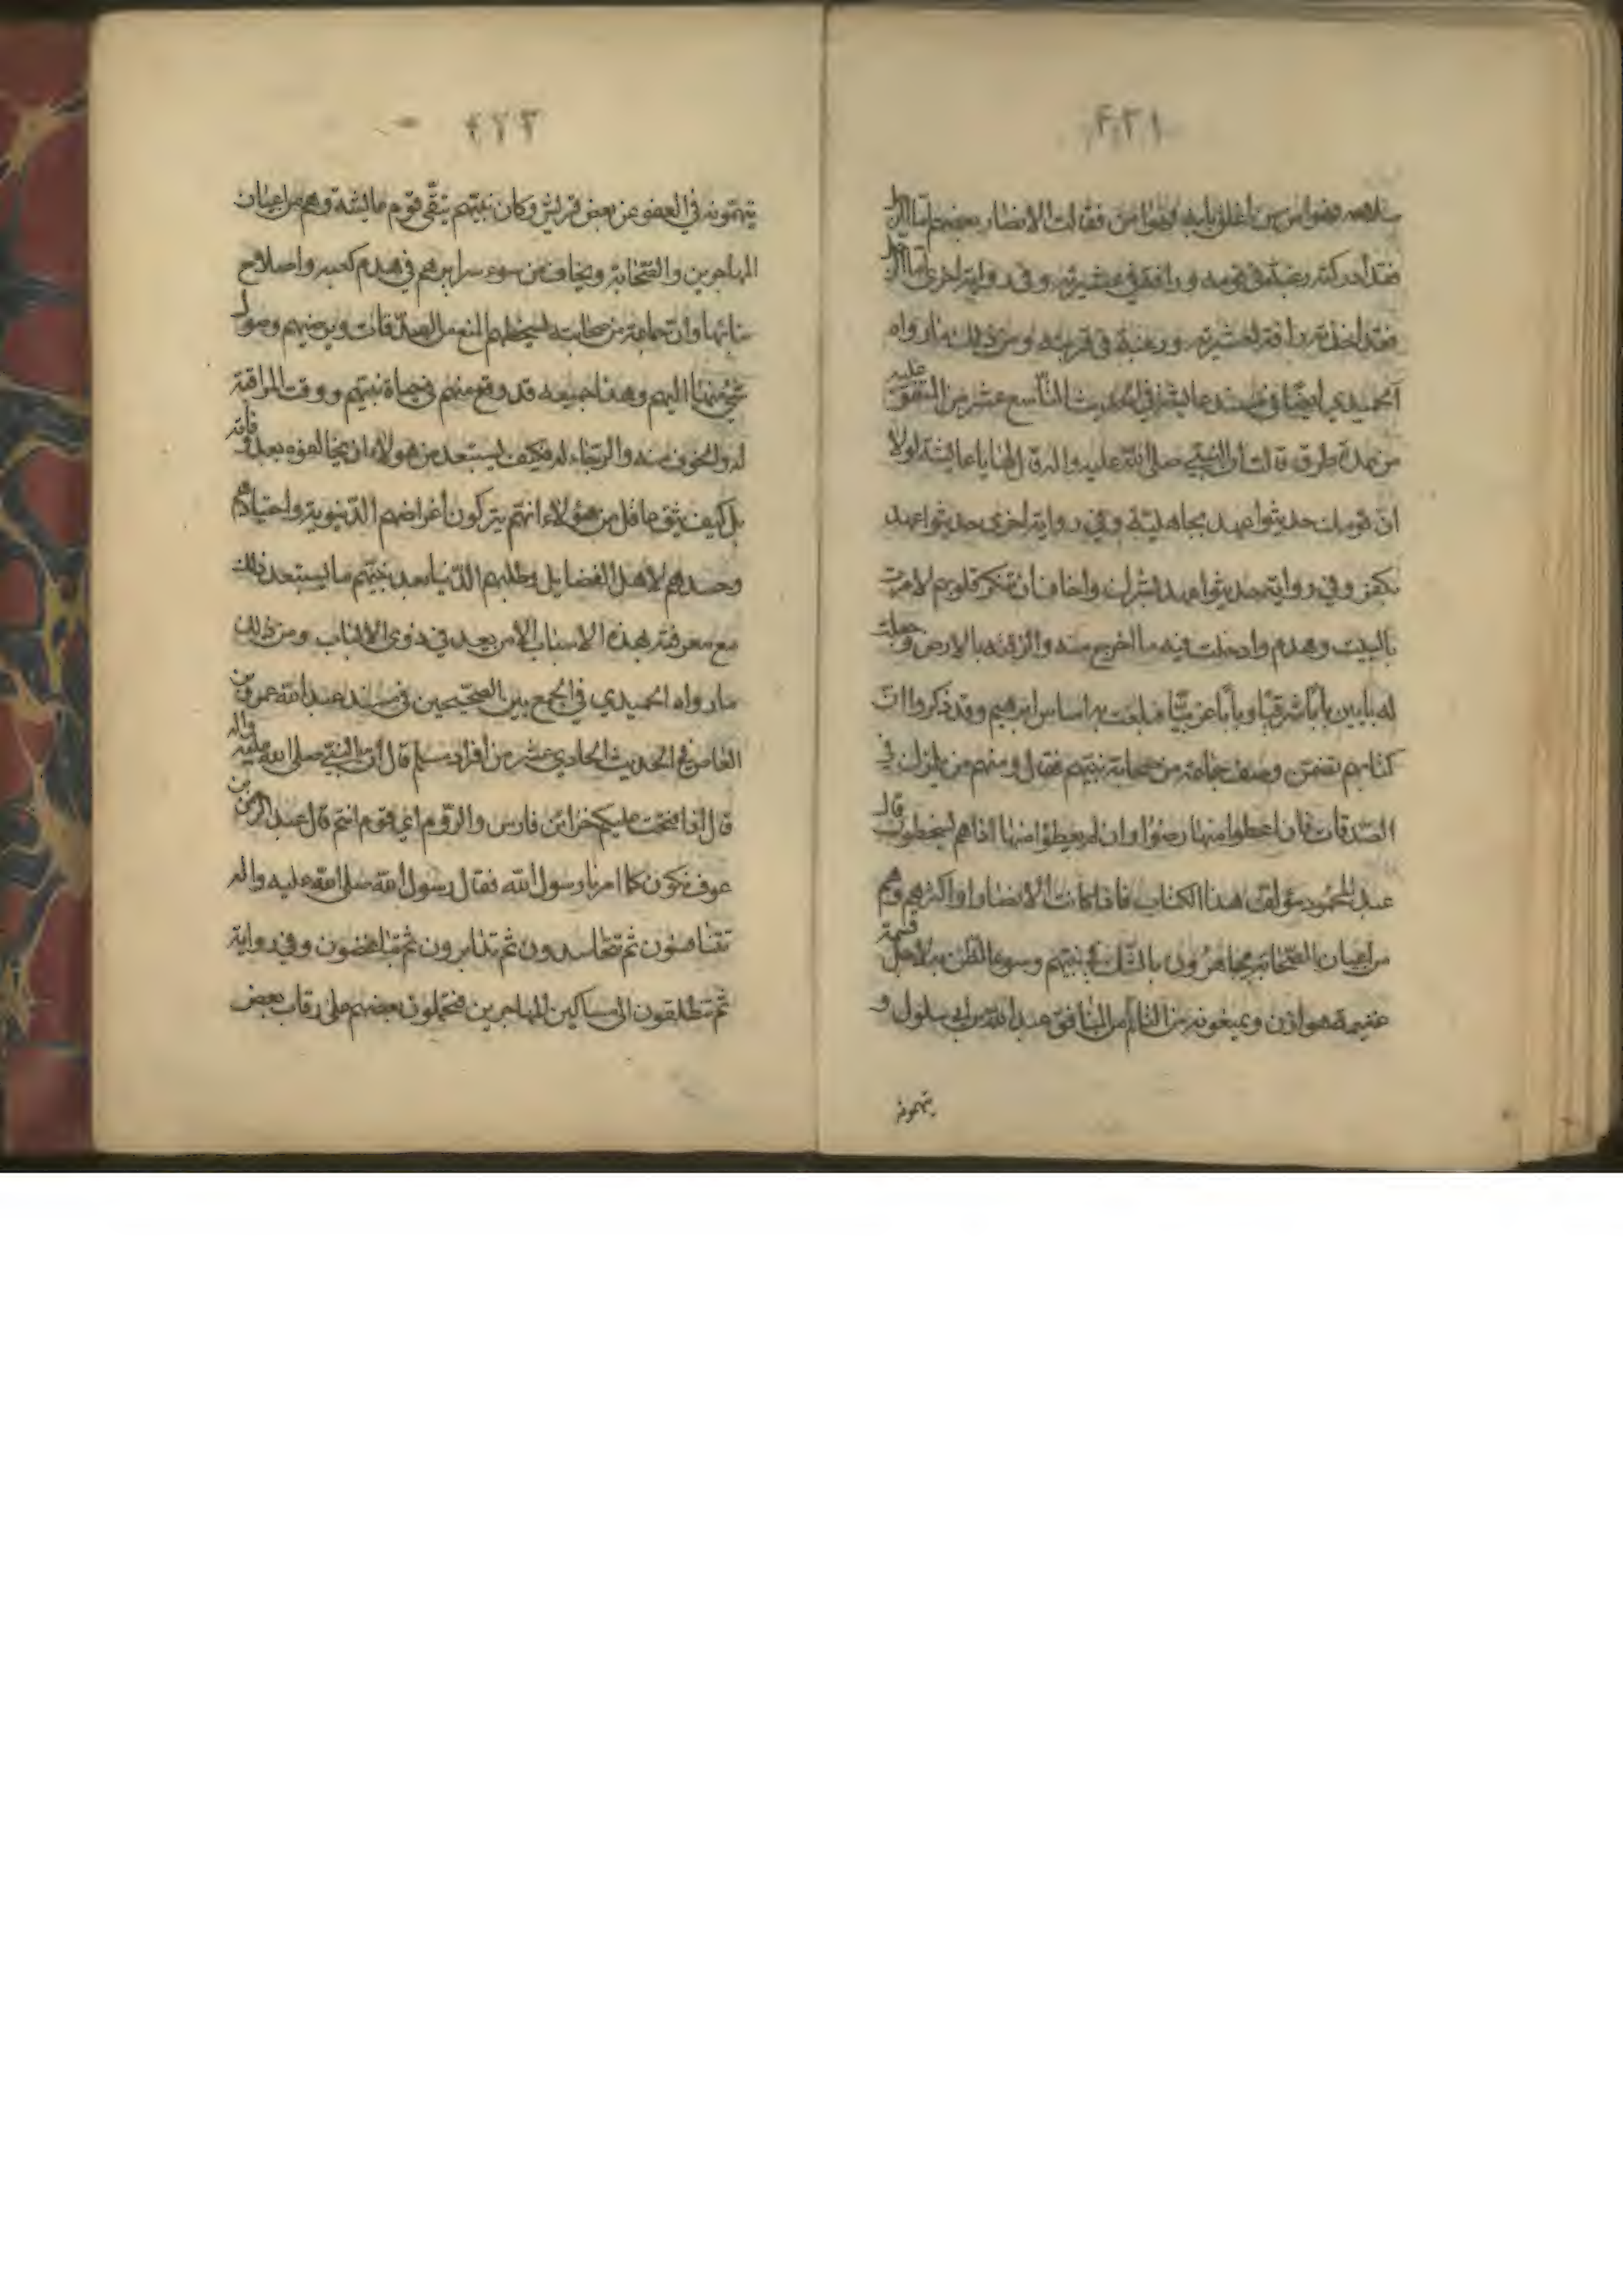 ٤٢١
سلاحه فهو امن ومن اغلق بابه فهو امن فقالت الانصار بعضهم اما الرجل
فقد ادركته رغبة في قومه ورافة في عشيرته وفي رواية اخرى اما الرجل
فقد اخذته رافة لعشيرته ورغبة في قريته ومن ذلك ما رواه
الحميدي ايضا في مسند عايشة في الحديث التاسع عشر من المتفق عليه
من عدة طرق قالت ان النبي صلى الله عليه واله قال لها يا عايشة لولا
ان قومك حديثوا عهد بجاهلية وفي رواية اخرى حديثوا عهد
بكفر وفي رواية حديثوا عهد بشرك واخاف ان تنكر قلوبهم لامرت
بالبيت وهدم وادخلت فيه ما اخرج منه والزقته بالارض وجعلت
له بابين بابا شرقيا وبابا غربيا فبلغت به اساس ابرهيم وقد ذكروا ان
كتابهم تضمن وصف جماعة من صحابة نبيهم فقال ومنهم من يلمزك في
الصدقات فان اعطوا منها رضوا وان لم يعطوا منها اذا هم يسخطون قال
عبد المحمود مؤلف هذا الكتاب فاذا كانت الانصار او اكثرهم وهم
من اعيان الصحابة يجاهرون بالشك في نبيهم وسوء الظن به لاجل قسمة
غنيمة هوازن ويمنعونه من المنافق عبد الله بن ابي سلول و
يتهمونه
٤٢٢
يتهمونه في العفو عن بعض قريش وكان نبيهم يتقي قوم عايشة وهم من اعيان
المهاجرين والصحابة ويخاف من سوء سرايرهم في هدم كعبة واصلاح
بنائها وان جماعة من صحابته يسخطهم المنع من الصدقات ويرضيهم وصول
شيء منها اليهم وهذا جميعه قد وقع منهم في حياة نبيهم ووقت المراقبة
له والخوف منه والرجاء له فكيف يستبعد من هولاء ان يخالفوه بعد وفاته
بل كيف يثق عاقل من هؤلاء انهم يتركون اغراضهم الدنيوية واحقادهم
وحسدهم لاهل الفضايل وطلبهم الدنيا بعد نبيهم ما يستبعد ذلك
مع معرفته بهذه الاسباب الا من بعد في ذوي الالباب ومن ذلك
ما رواه الحميدي في الجمع بين الصحيحين في مسند عبد الله عمرو بن
العاص في الحديث الحادي عشر من افراد مسلم قال ان النبي صلى الله عليه واله
قال اذا فتحت عليكم خزائن فارس والروم اي قوم انتم قال عبد الرحمن بن
عوف نكون كما امرنا رسول الله فقال رسول الله صلى الله عليه واله
تتنافسون ثم تتحاسدون ثم تتدابرون ثم تتباغضون وفي رواية
ثم تنطلقون الى مساكين المهاجرين فتحملون بعضهم على رقاب بعض